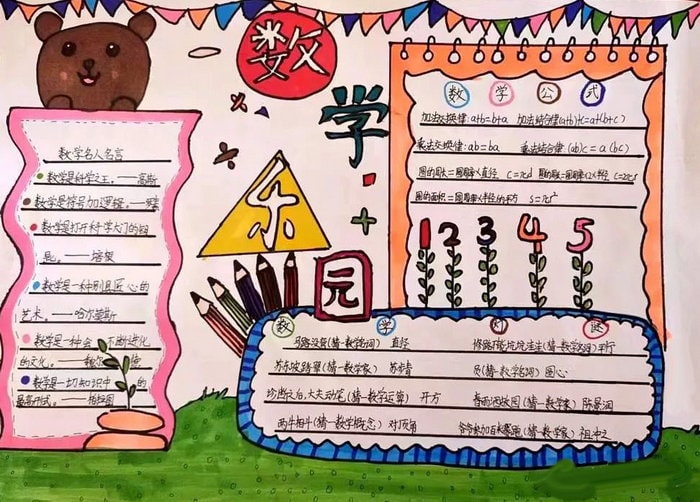 数学乐园
数学名人名言
数学是科学之王。——高斯
数学是符号加逻辑。——罗素
数学是打开科学大门的钥
匙。——培根
数学是一种别具匠心的
艺术。——哈尔莫斯
数学是一种会不断进化
的文化。——
数学是一切知识中的
最高形式。——柏拉图
数学公式
加法交换律:a+b=b+a 加法结合律(a+b)+c=a+(b+c)
乘法交换律:ab=ba 乘法结合律(ab)c=a(bc)
圆的周长=圆周率×直径 C=πd 圆的周长=圆周率×2×半径 C=2πr
圆的面积=圆周率×半径的平方 S=πr²
1 2 3 4 5
数学灯谜
马路没弯(猜一数学名词) 直径 修路(猜一数学名词)平行
苏东坡踏翠(猜一数学家) 苏步青 员(猜一数学名词)圆心
诊断之后,大夫动笔(猜一数学运算) 开方 春雨洒故园(猜一数学家)陈景润
两牛相斗(猜一数学概念) 对顶角 爷爷参加百米赛跑(猜一数学家)祖冲之